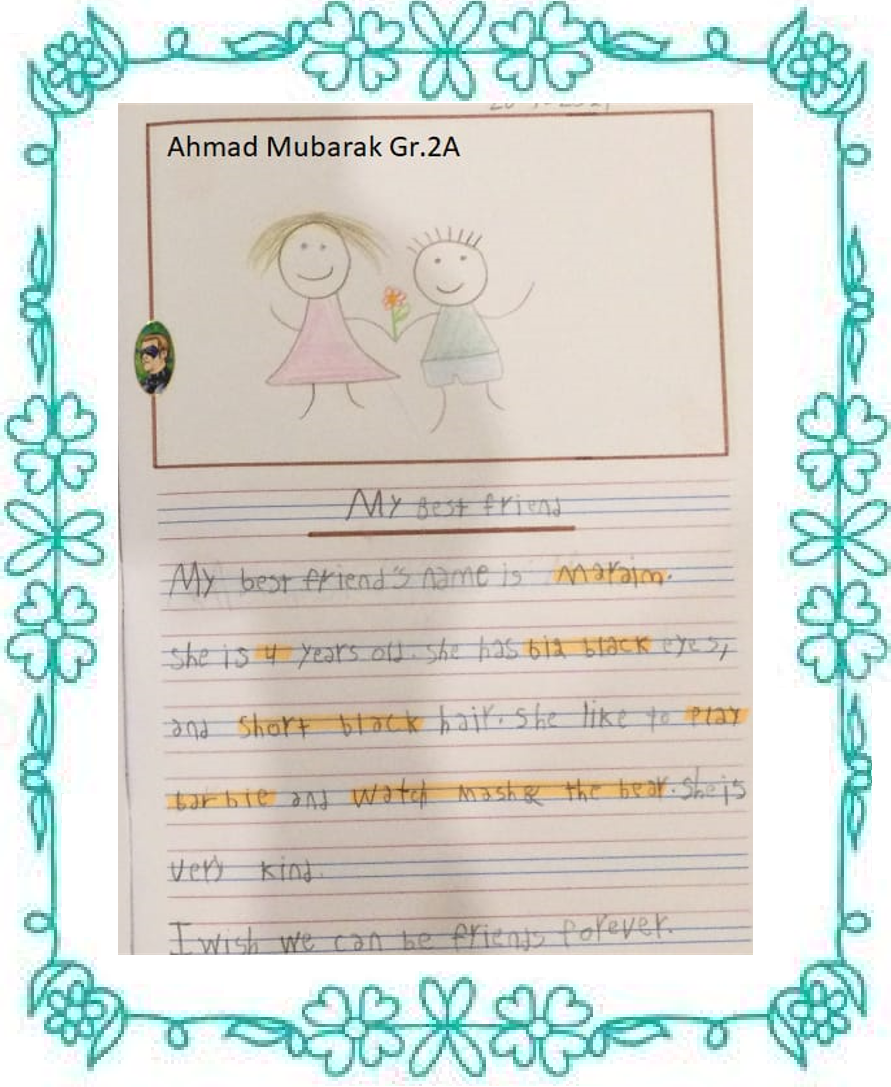 Ahmad Mubarak Gr.2A
My Best friend
My best friend's name is Maraim.
She is 4 years old. she has big black eyes,
and short black hair. She like to play
barbie and watch mash& the bear. She is
very kind.
I wish we can be friends forever.